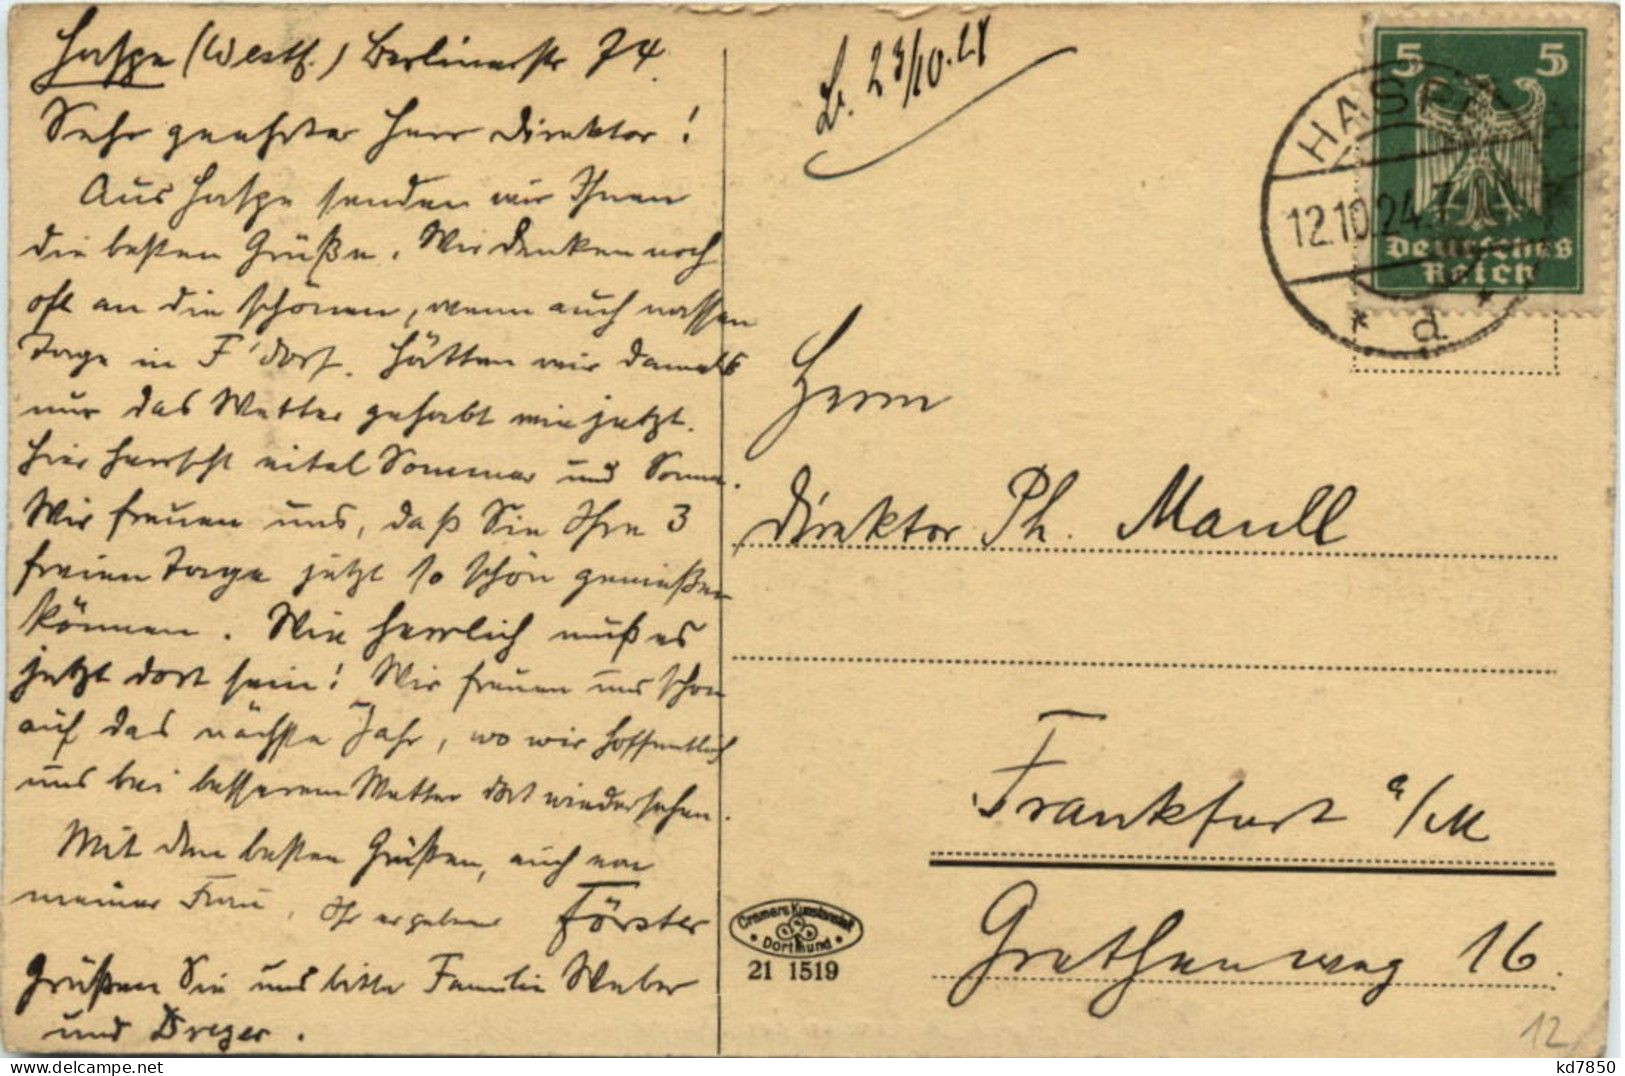 Haspe (Westf.) Berlinerstr 74.
Sehr geehrter Herr Direktor!
Aus Haspe senden wir Ihnen
die besten Grüße. Wir denken noch
oft an die schönen, wenn auch nassen
Tage in F'dorf. Hätten wir damals
nur das Wetter gehabt wie jetzt.
Hier herrscht eitel Sommer und Sonne.
Wir freuen uns, daß Sie Ihre 3
freien Tage jetzt so schön genießen
können. Wie herrlich muß es
jetzt dort sein! Wir freuen uns schon
auf das nächste Jahr, wo wir hoffentlich
uns bei besserem Wetter dort wiedersehen.
Mit den besten Grüßen, auch von
meiner Frau, Ihr ergebener Förster
Grüßen Sie uns bitte Familie Weber
und Dreyer.
23/10.24
5 5
Deutsches
Reich
HASPE
12.10.24.7
* d *
Herrn
Direktor Ph. Maull
Frankfurt a/M
Grethenweg 16.
Cramers Kunstanstalt
• Dortmund •
21 1519
12
kd7850